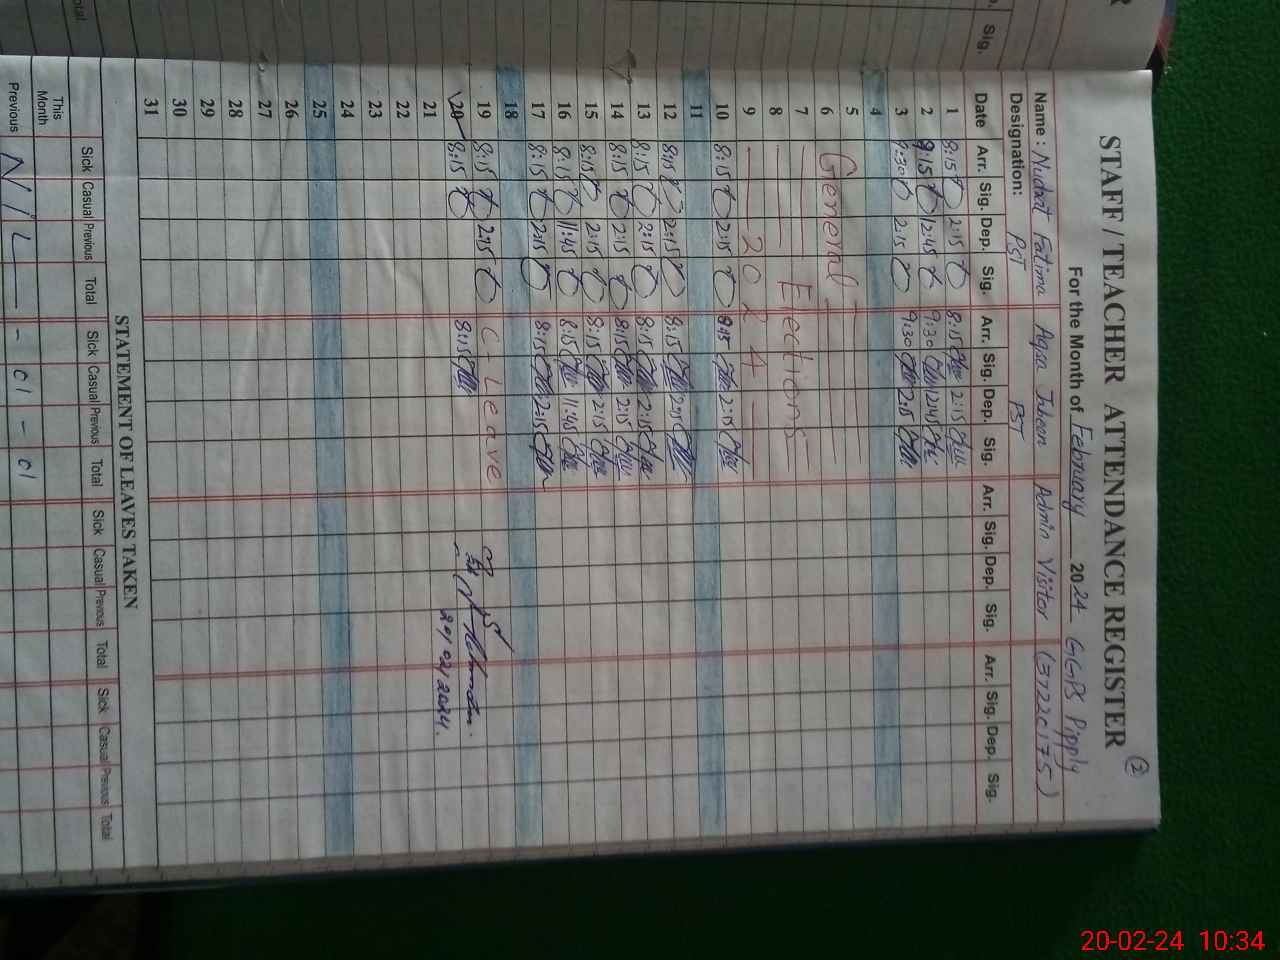 STAFF / TEACHER ATTENDANCE REGISTER
For the Month of February 2024 GGPS Pipply
Name: Nudrat Fatima Aqsa Jabeen Admin Visitor (37220175)
Designation: PST PST
Date Arr. Sig. Dep. Sig. Arr. Sig. Dep. Sig. Arr. Sig. Dep. Sig. Arr. Sig. Dep. Sig.
1 8:15 2:15 8:15 2:15
2 9:15 12:45 9:30 12:45
3 9:30 2:15 9:30 2:15
4
5
6 General
7 Elections
8
9 2024
10 8:15 2:15 8:15 2:15
11
12 8:15 2:15 8:15 2:15
13 8:15 2:15 8:15 2:15
14 8:15 2:15 8:15 2:15
15 8:15 2:15 8:15 2:15
16 8:15 11:45 8:15 11:45
17 8:15 2:15 8:15 2:15
18
19 8:15 2:15 C-Leave
20 8:15 8:15
20/02/2024.
21
22
23
24
25
26
27
28
29
30
31
STATEMENT OF LEAVES TAKEN
Sick Casual Previous Total Sick Casual Previous Total Sick Casual Previous Total Sick Casual Previous Total
This Month
Previous NIL - 01 - 01
Sig.
20-02-24 10:34